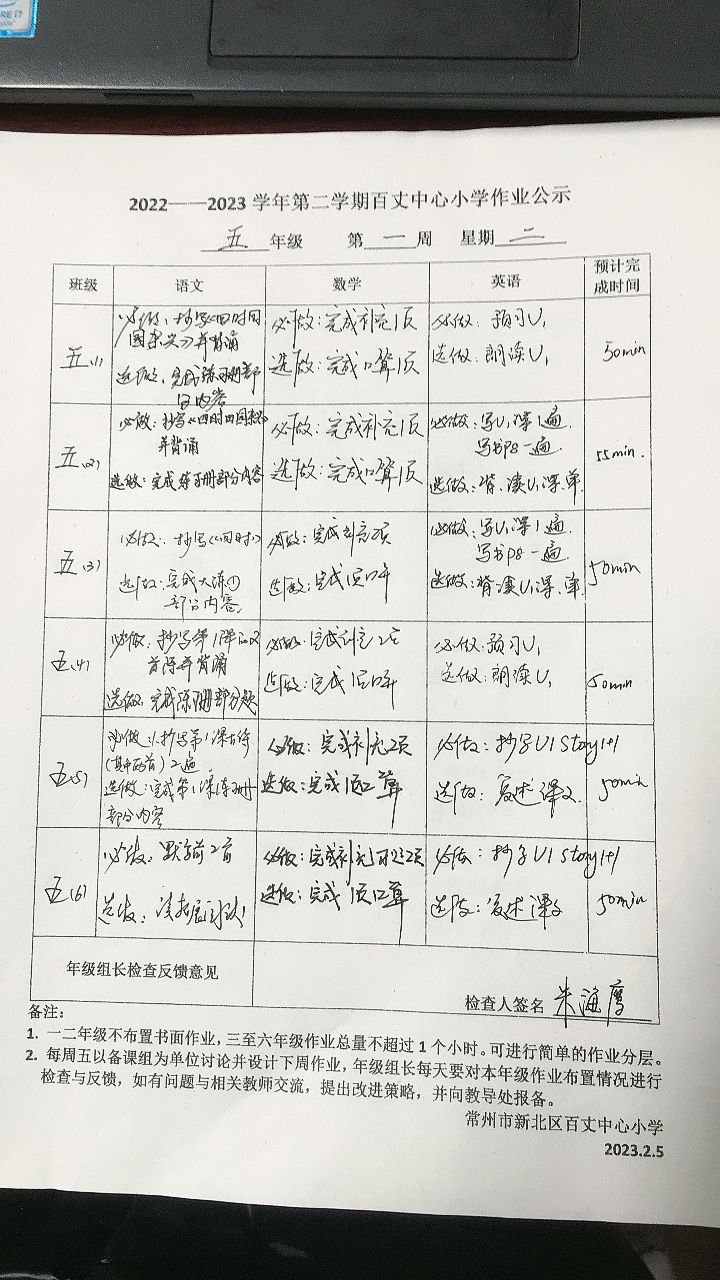 CORE i7
2022——2023 学年第二学期百丈中心小学作业公示
五 年级 第 一 周 星期 二
班级 语文 数学 英语 预计完成时间
五(1)
必做：抄写《四时田
园杂兴》并背诵
选做：完成练习册部
分内容
必做：完成补充1页
选做：完成口算1页
必做：预习U1
选做：朗读U1
50min
五(2)
必做：抄写《四时田园杂兴》
并背诵
选做：完成练习册部分内容
必做：完成补充1页
选做：完成口算1页
必做：写U1课1遍.
写书P8一遍.
选做：背、读U1课、单
55min.
五(3)
必做：抄写《四时》
选做：完成大练①
部分内容
必做：完成补充2页
选做：完成1页口算
必做：写U1课1遍.
写书P8一遍.
选做：背、读U1课、单
50min
五(4)
必做：抄写第1课
首诗并背诵
选做：完成练习册部分题
必做：完成补充2页
选做：完成1页口算
必做：预习U1
选做：朗读U1
50min
五(5)
必做：抄写第1课古诗
(其中两首)2遍
选做：完成第1课练习册
部分内容
必做：完成补充2页
选做：完成1页口算
必做：抄写U1 Story 1+1
选做：复述课文.
50min
五(6)
必做：默写前2首
选做：
必做：完成补充2页
选做：完成1页口算
必做：抄写U1 Story 1+1
选做：复述课文
50min
年级组长检查反馈意见
检查人签名 朱海鹰
备注：
1. 一二年级不布置书面作业，三至六年级作业总量不超过 1 个小时。可进行简单的作业分层。
2. 每周五以备课组为单位讨论并设计下周作业，年级组长每天要对本年级作业布置情况进行
检查与反馈，如有问题与相关教师交流，提出改进策略，并向教导处报备。
常州市新北区百丈中心小学
2023.2.5